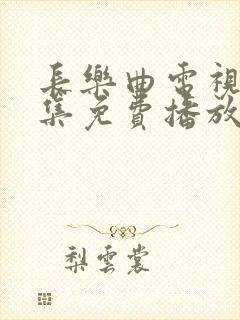 長樂曲電視
集免費播放
梨雲裳